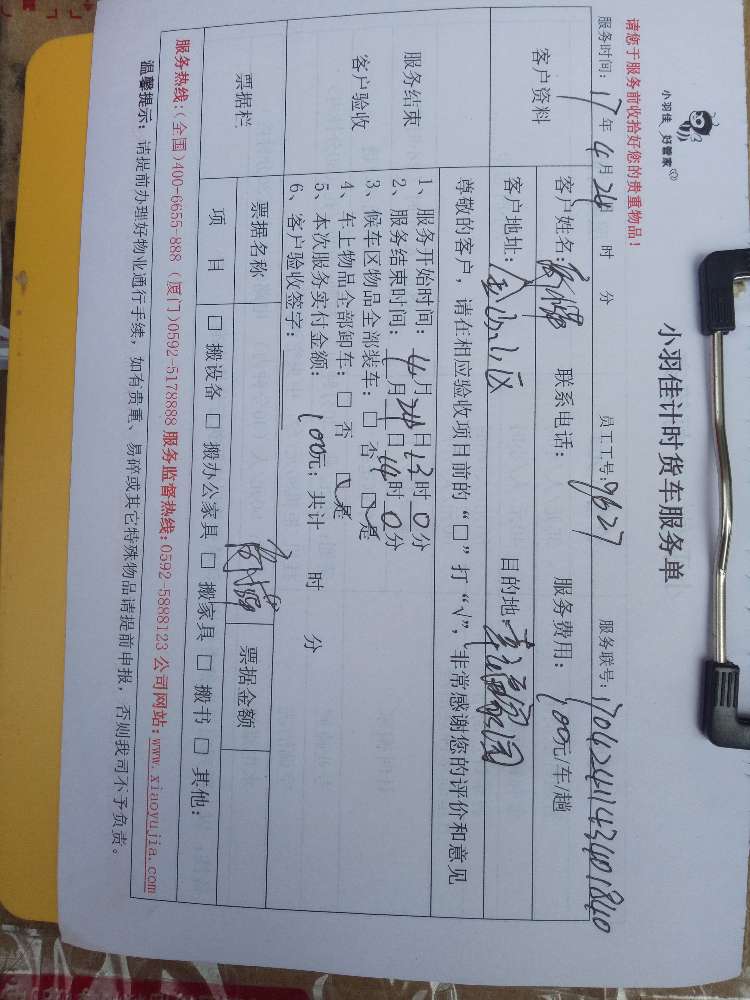 小羽佳 好管家
小羽佳计时货车服务单
请您于服务前收拾好您的贵重物品!
服务时间: 17年4月24日 时 分 员工工号: 9627 服务联号:
客户资料 客户姓名: 联系电话: 服务费用: 100元/车/趟
客户地址: 金山小区 目的地: 幸福家园
服务结束
客户验收
尊敬的客户, 请在相应验收项目前的“□”打“√”, 非常感谢您的评价和意见
1、服务开始时间: 4月24日13时0分
2、服务结束时间: 4月24日14时0分
3、候车区物品全部装车: □ 否 ☑ 是
4、车上物品全部卸车: □ 否 ☑ 是
5、本次服务实付金额: 100元; 共计 时 分
6、客户验收签字:
票据栏 票据名称 票据金额
项 目 □ 搬设备 □ 搬办公家具 □ 搬家具 □ 搬书 □ 其他:
服务热线:(全国)400-6655-888 (厦门)0592-5178888 服务监督热线: 0592-5888123 公司网站: www.xiaoyujia.com
温馨提示: 请提前办理好物业通行手续, 如有贵重、易碎或其它特殊物品请提前申报, 否则我司不予负责。